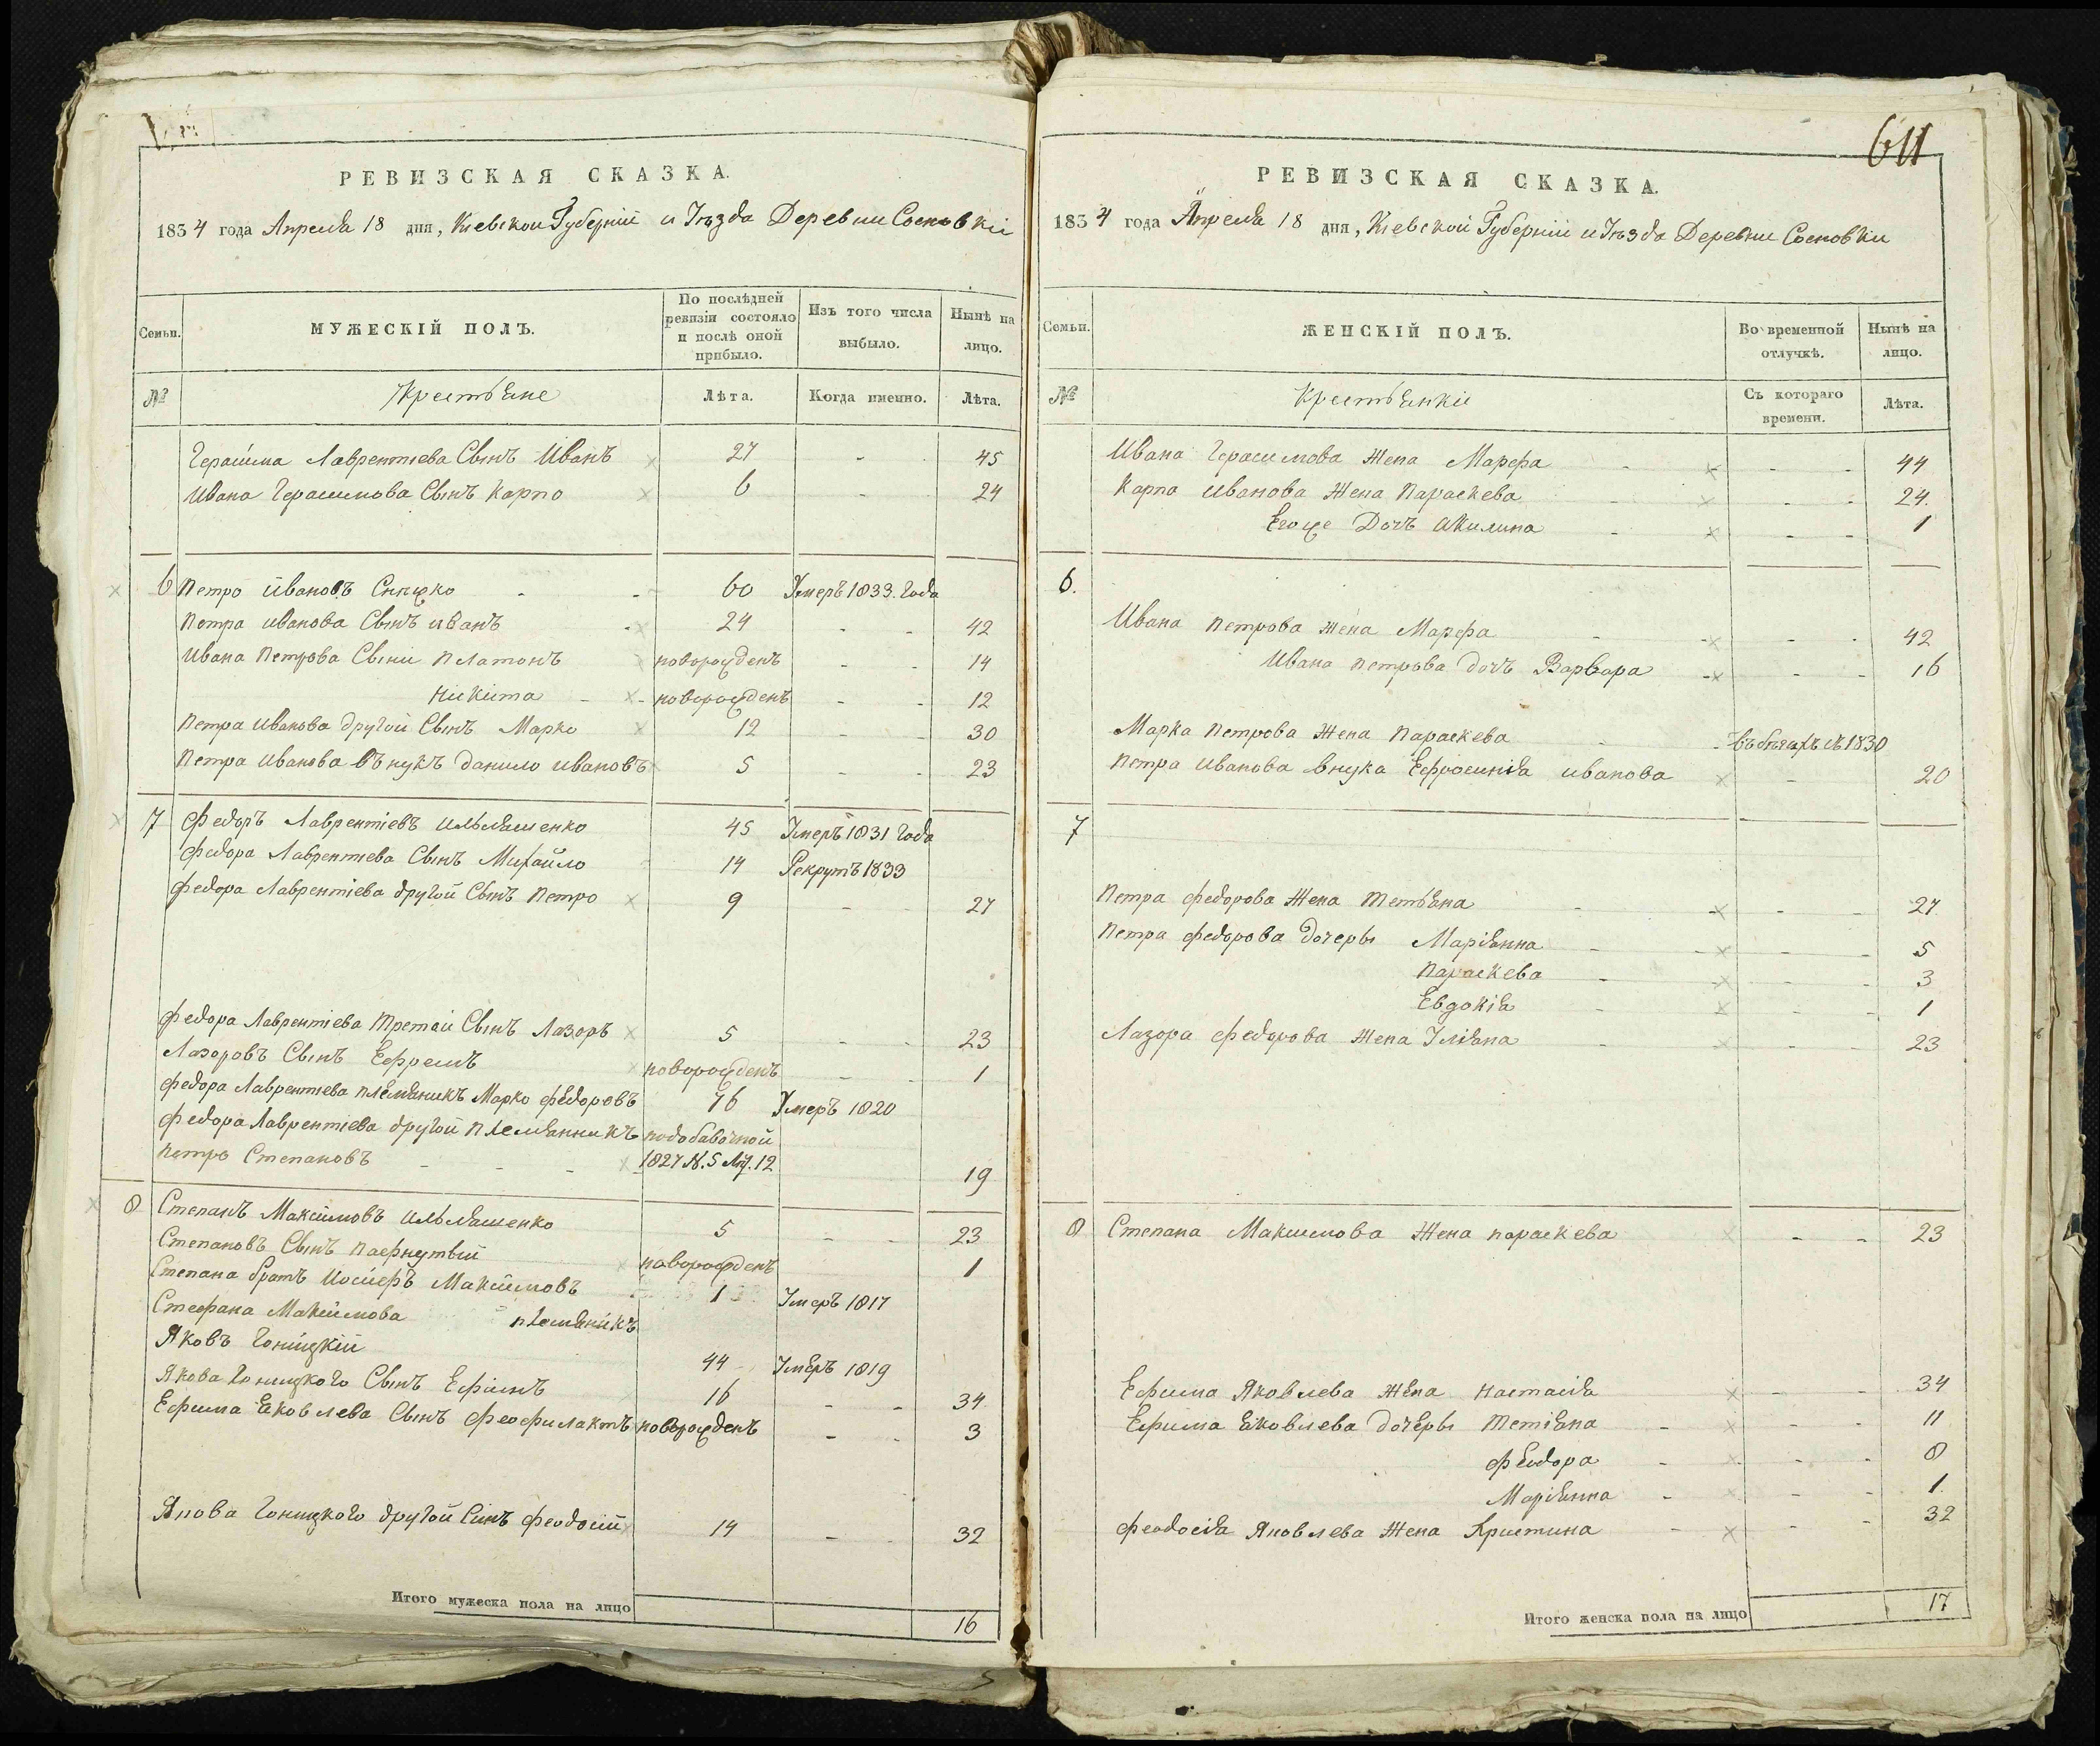 РЕВИЗСКАЯ СКАЗКА.
1834 года Апреля 18 дня, Киевской Губерніи и Уѣзда Деревни Сосновки
Семьи.
МУЖЕСКІЙ ПОЛЪ.
По послѣдней ревизіи состояло и послѣ оной прибыло.
Изъ того числа выбыло.
Нынѣ на лицо.
№
Крестьяне
Лѣта.
Когда именно.
Лѣта.
Герасима Лаврентіева Сынъ Иванъ 27 - - 45
Ивана Герасимова Сынъ Карпо 6 - - 24
6 Петро Ивановъ 60 Умеръ 1833. Года
Петра Иванова Сынъ Иванъ 24 - - 42
Ивана Петрова Сыни Платонъ новорожденъ - - 14
Никита новорожденъ - - 12
Петра Иванова другой Сынъ Марко 12 - - 30
Петра Иванова Вънукъ Данило Ивановъ 5 - - 23
7 Федоръ Лаврентіевъ Ильяшенко 45 Умеръ 1831 Года
Федора Лаврентіева Сынъ Михайло 14 Рекрутъ 1833
Федора Лаврентіева другой Сынъ Петро 9 - - 27
Федора Лаврентіева Третай Сынъ Лазоръ 5 - - 23
Лазоровъ Сынъ Ефремъ новорожденъ - - 1
Федора Лаврентіева племяникъ Марко Федоровъ 76 Умеръ 1820
Федора Лаврентіева другой племянникъ подобавочной
Петро Степановъ - - - 1827 №. 5 Лѣт. 12 19
8 Степанъ Максимовъ Ильяшенко 5 - - 23
Степановъ Сынъ Пафнутый новорожденъ 1
Степана братъ Иосифъ Максимовъ 1 Умеръ 1817
Стефана Максимова племяникъ
Яковъ Гоницкій 44 Умеръ 1819
Якова Гоницкого Сынъ Ефимъ 16 - - 34
Ефима Яковлева Сынъ Феофилактъ новорожденъ - - 3
Якова Гоницкого другой Синъ Феодосий 14 - - 32
Итого мужеска пола на лицо 16
611
РЕВИЗСКАЯ СКАЗКА.
1834 года Апреля 18 дня, Киевской Губерніи и Уѣзда Деревни Сосновки
Семьи.
ЖЕНСКІЙ ПОЛЪ.
Во временной отлучкѣ.
Нынѣ на лицо.
№
Крестьянки
Съ котораго времени.
Лѣта.
Ивана Герасимова Жена Марфа - - 44
Карпа Иванова Жена Параскева - - 24.
Егоже Дочъ Акилина - - 1
6.
Ивана Петрова жена Марфа - - 42
Ивана Петрова дочъ Варвара - - 16
Марка Петрова Жена Параскева въ бѣгахъ съ 1830
Петра Иванова внука Ефросинія Иванова - 20
7
Петра Федорова Жена Тетьяна - - 27
Петра Федорова дочеры Маріянна - - 5
Параскева - - 3
Евдокія - - 1
Лазора Федорова Жена Уліяна - - 23
8 Степана Максимова Жена Параскева - - 23
Ефима Яковлева жена Настасія - - 34
Ефима Яковлева дочеры Тетіяна - - 11
Феодора - - 8
Маріянна - - 1.
Феодосія Яковлева Жена Христина - - 32
Итого женска пола на лицо 17